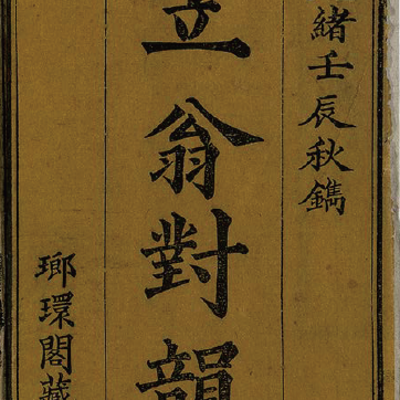 緒壬辰秋鐫
立翁對韻
瑯環閣藏